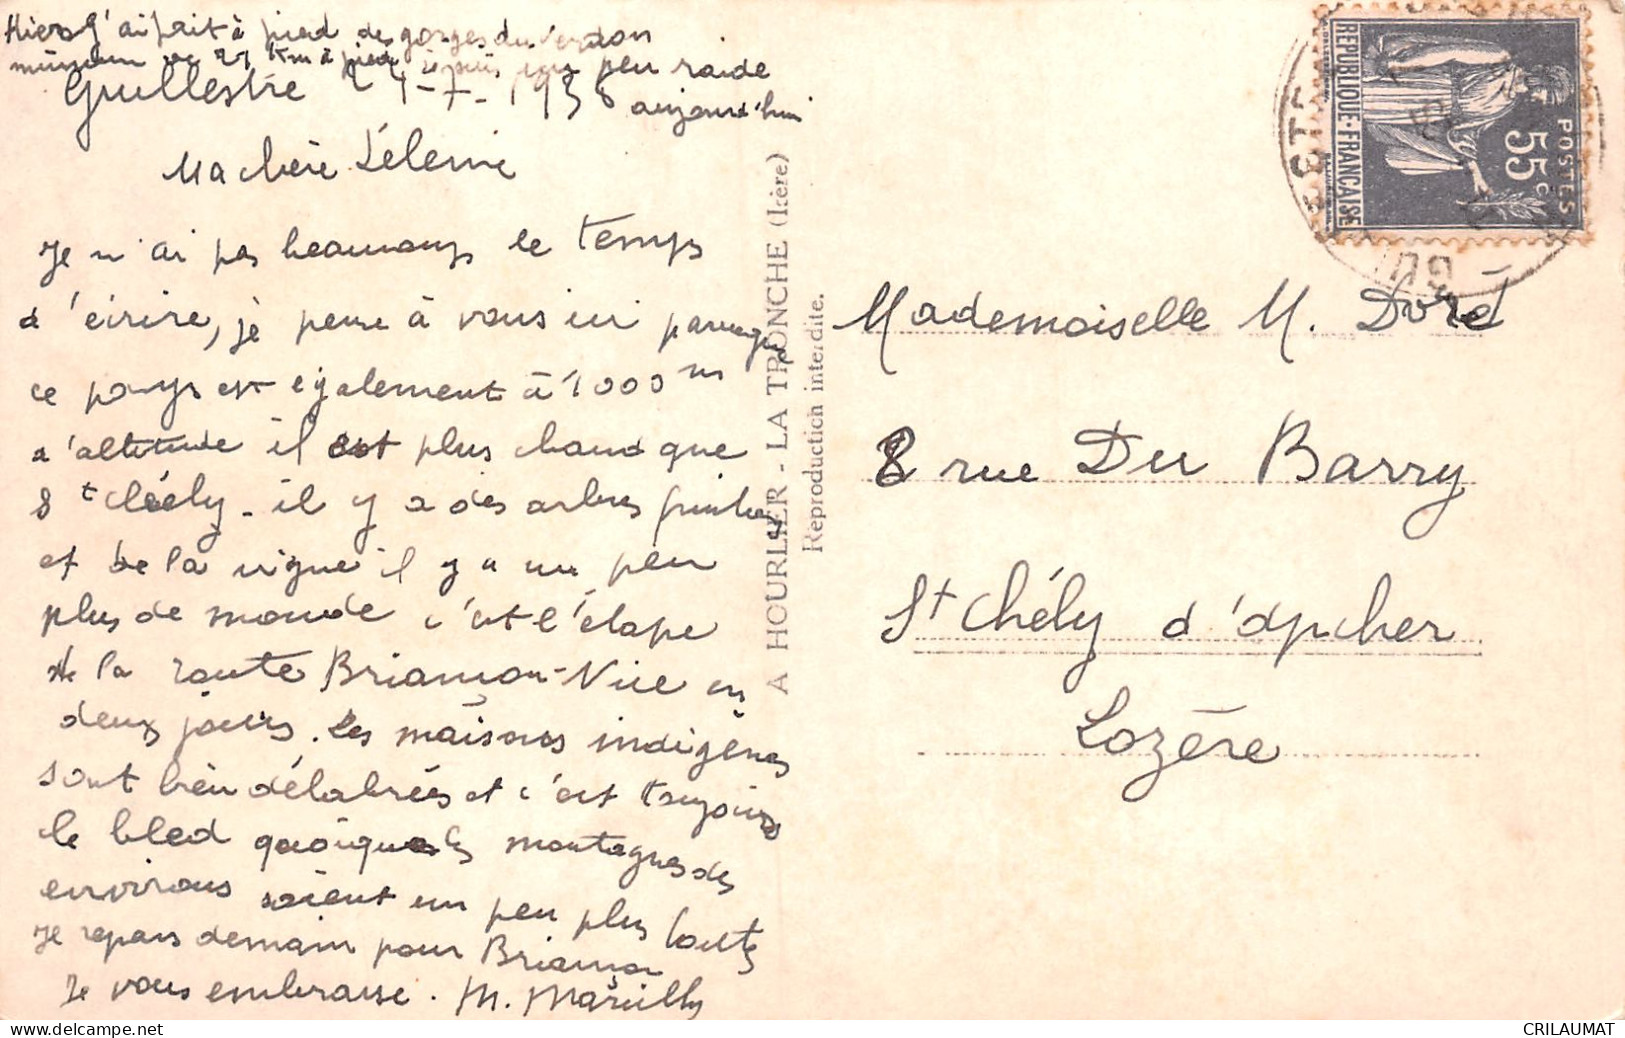 Hier j'ai fait à pied des gorges du Verdon
minimum de 27 Km à pied je suis un peu raide
aujourd'hui
Guillestre 24-7-1938
Ma chère Lélerie
Je n'ai pas beaucoup le temps
d'écrire, je pense à vous ici parceque
ce pays est également à 1000 m
d'altitude il est plus chaud que
St Chély - il y a des arbres fruitiers
et de la vigne il y a un peu
plus de monde c'est l'étape
de la route Briançon-Nice en
deux jours. Les maisons indigènes
sont bien délabrées et c'est toujours
le bled quoique les montagnes des
environs soient un peu plus hautes
Je repars demain pour Briançon
Je vous embrasse. M. Marcilly
A HOURLIER - LA TRONCHE (Isère)
Reproduction interdite.
REPUBLIQUE·FRANÇAISE
POSTES
55c
Mademoiselle M. Doré
8 rue Du Barry
St Chély d'Apcher
Lozère
CRILAUMAT